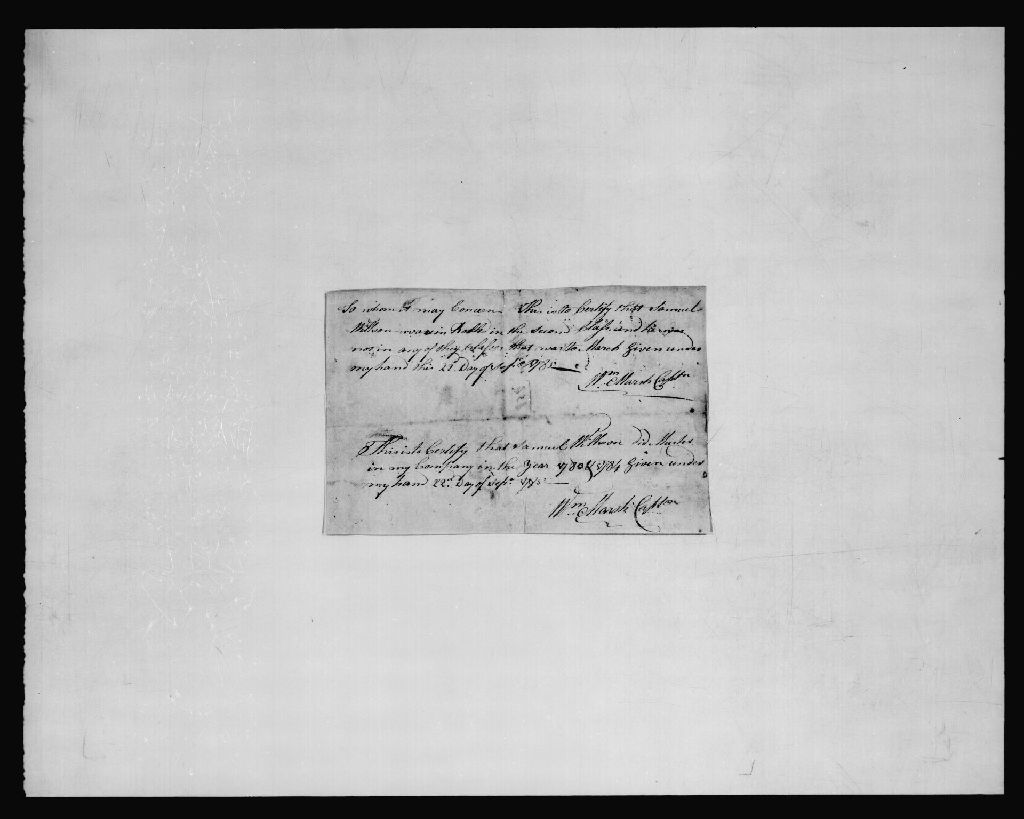 To whom It may Concern This is to Certify that Samuel
was in in the second Class and he was
not in any of the Classes that was to March Given under
my hand this 21st Day of Sepr 178
Wm Marsh Captn
This is to Certify that Samuel did Muster
in my Company in the Year 1780 & 1781 Given under
my hand 22d Day of Sepr 178
Wm Marsh Captn